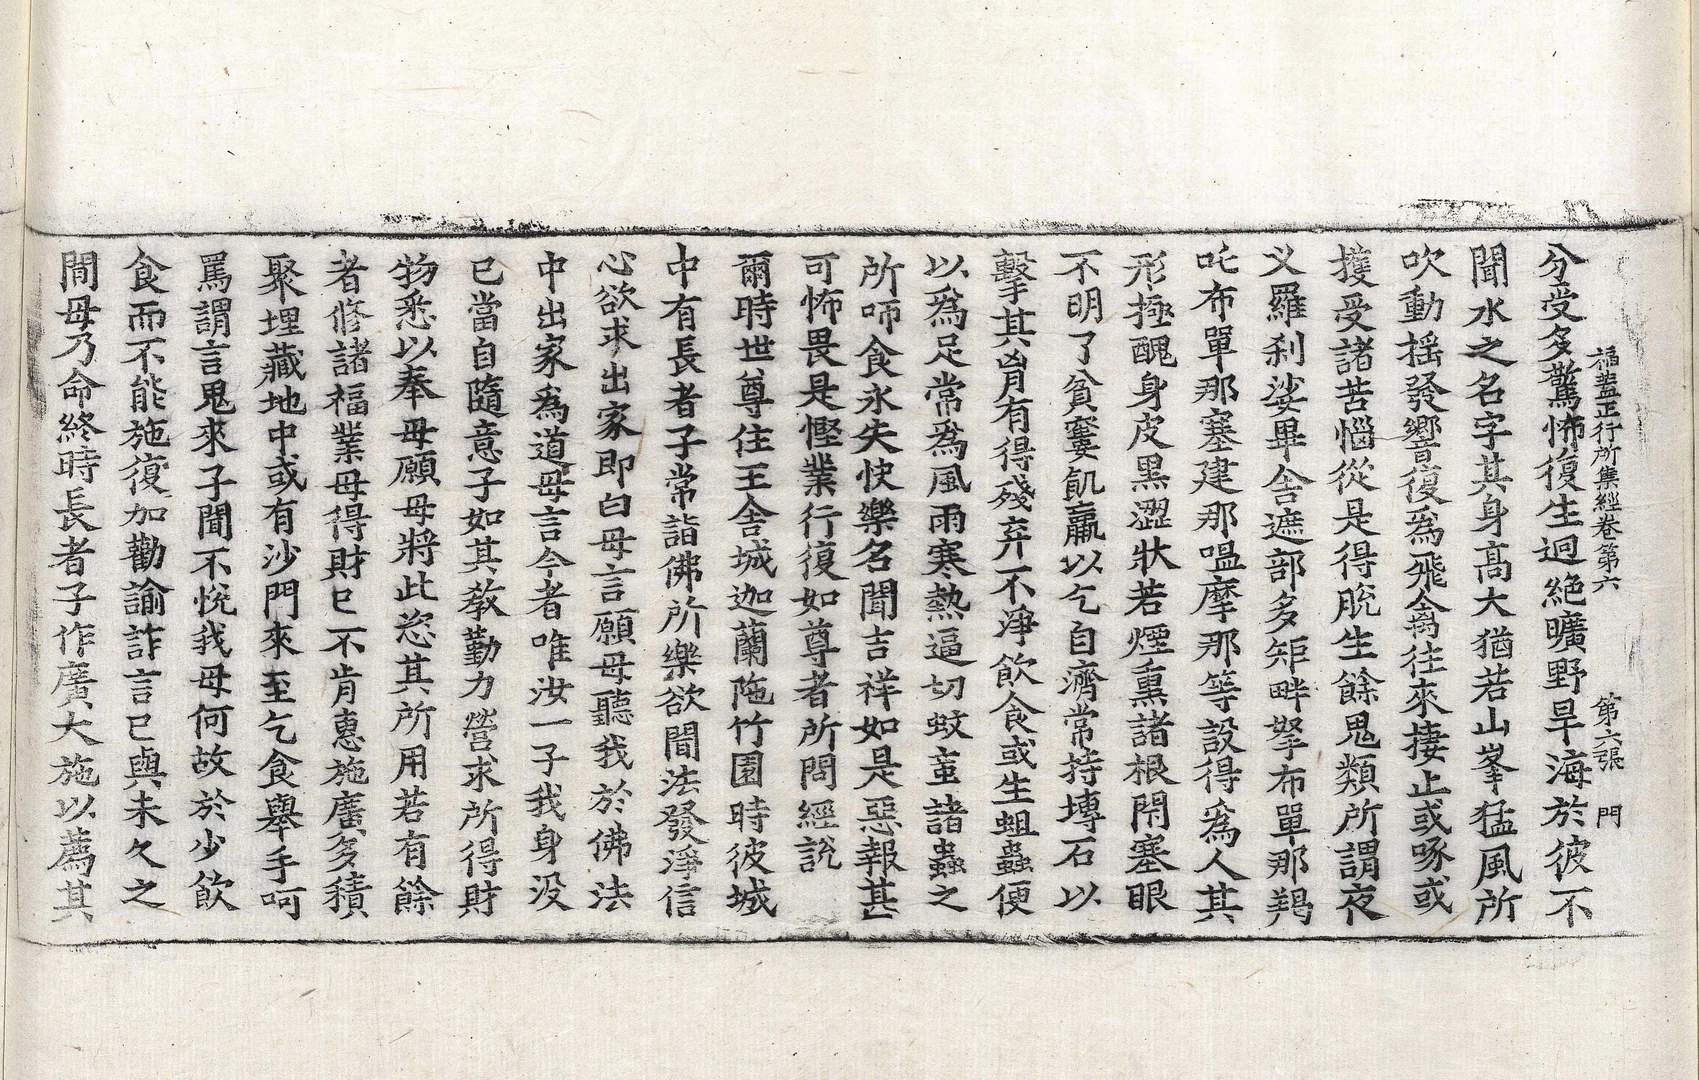 福蓋正行所集經卷第六　第六張　門
分受多驚怖復生迥絶曠野旱海於彼不
聞水之名字其身高大猶若山峯猛風所
吹動揺發響復爲飛禽往來捿止或啄或
攫受諸苦惱從是得脫生餘鬼類所謂夜
叉羅刹娑畢舍遮部多矩畔拏布單那羯
吒布單那塞建那嗢摩那等設得爲人其
形極醜身皮黑澀狀若煙熏諸根閇塞眼
不明了貧窶飢羸以乞自濟常持塼石以
擊其胷有得殘弃不淨飲食或生蛆蟲便
以爲足常爲風雨寒熱逼切蚊䖟諸蟲之
所咂食永失快樂名聞吉祥如是惡報甚
可怖畏是慳業行復如尊者所問經說
爾時世尊住王舍城迦蘭陁竹園時彼城
中有長者子常詣佛所樂欲聞法發淨信
心欲求出家即白母言願母聽我於佛法
中出家爲道母言今者唯汝一子我身沒
已當自隨意子如其教勤力營求所得財
物悉以奉母願母將此恣其所用若有餘
者修諸福業母得財已不肯惠施廣多積
聚埋藏地中或有沙門來至乞食舉手呵
罵謂言鬼來子聞不悅我母何故於少飲
食而不能施復加勸諭詐言已與未久之
間母乃命終時長者子作廣大施以薦其